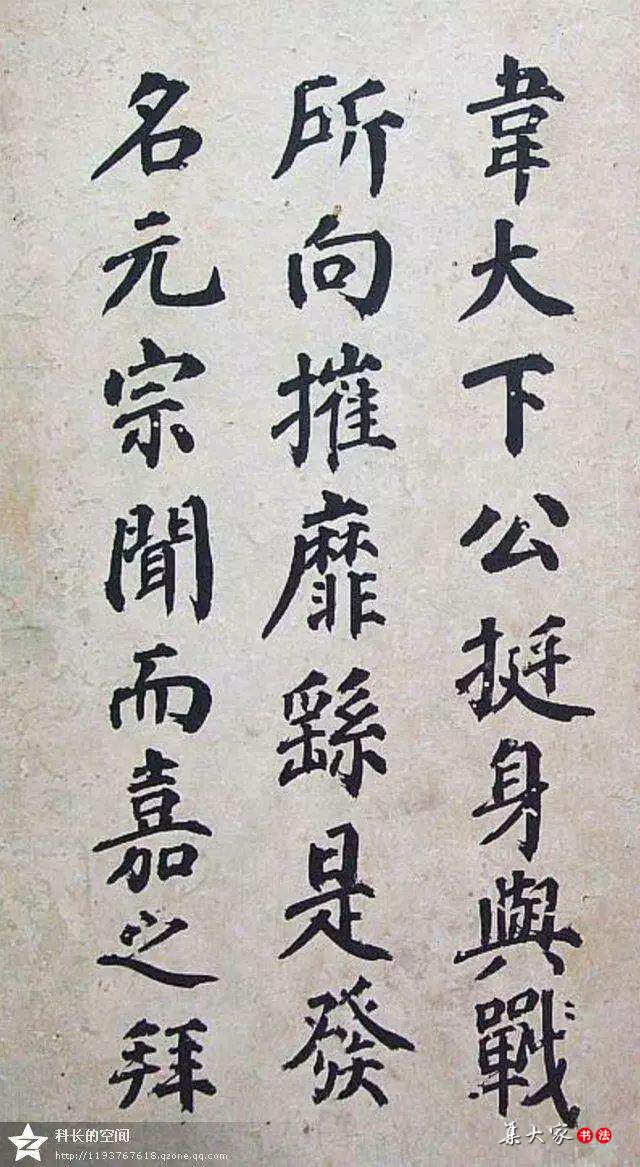 韋大下公挺身與戰
所向摧靡繇是發
名元宗聞而嘉之拜
科长的空间
http://1193767618.qzone.qq.com
集大家 书法